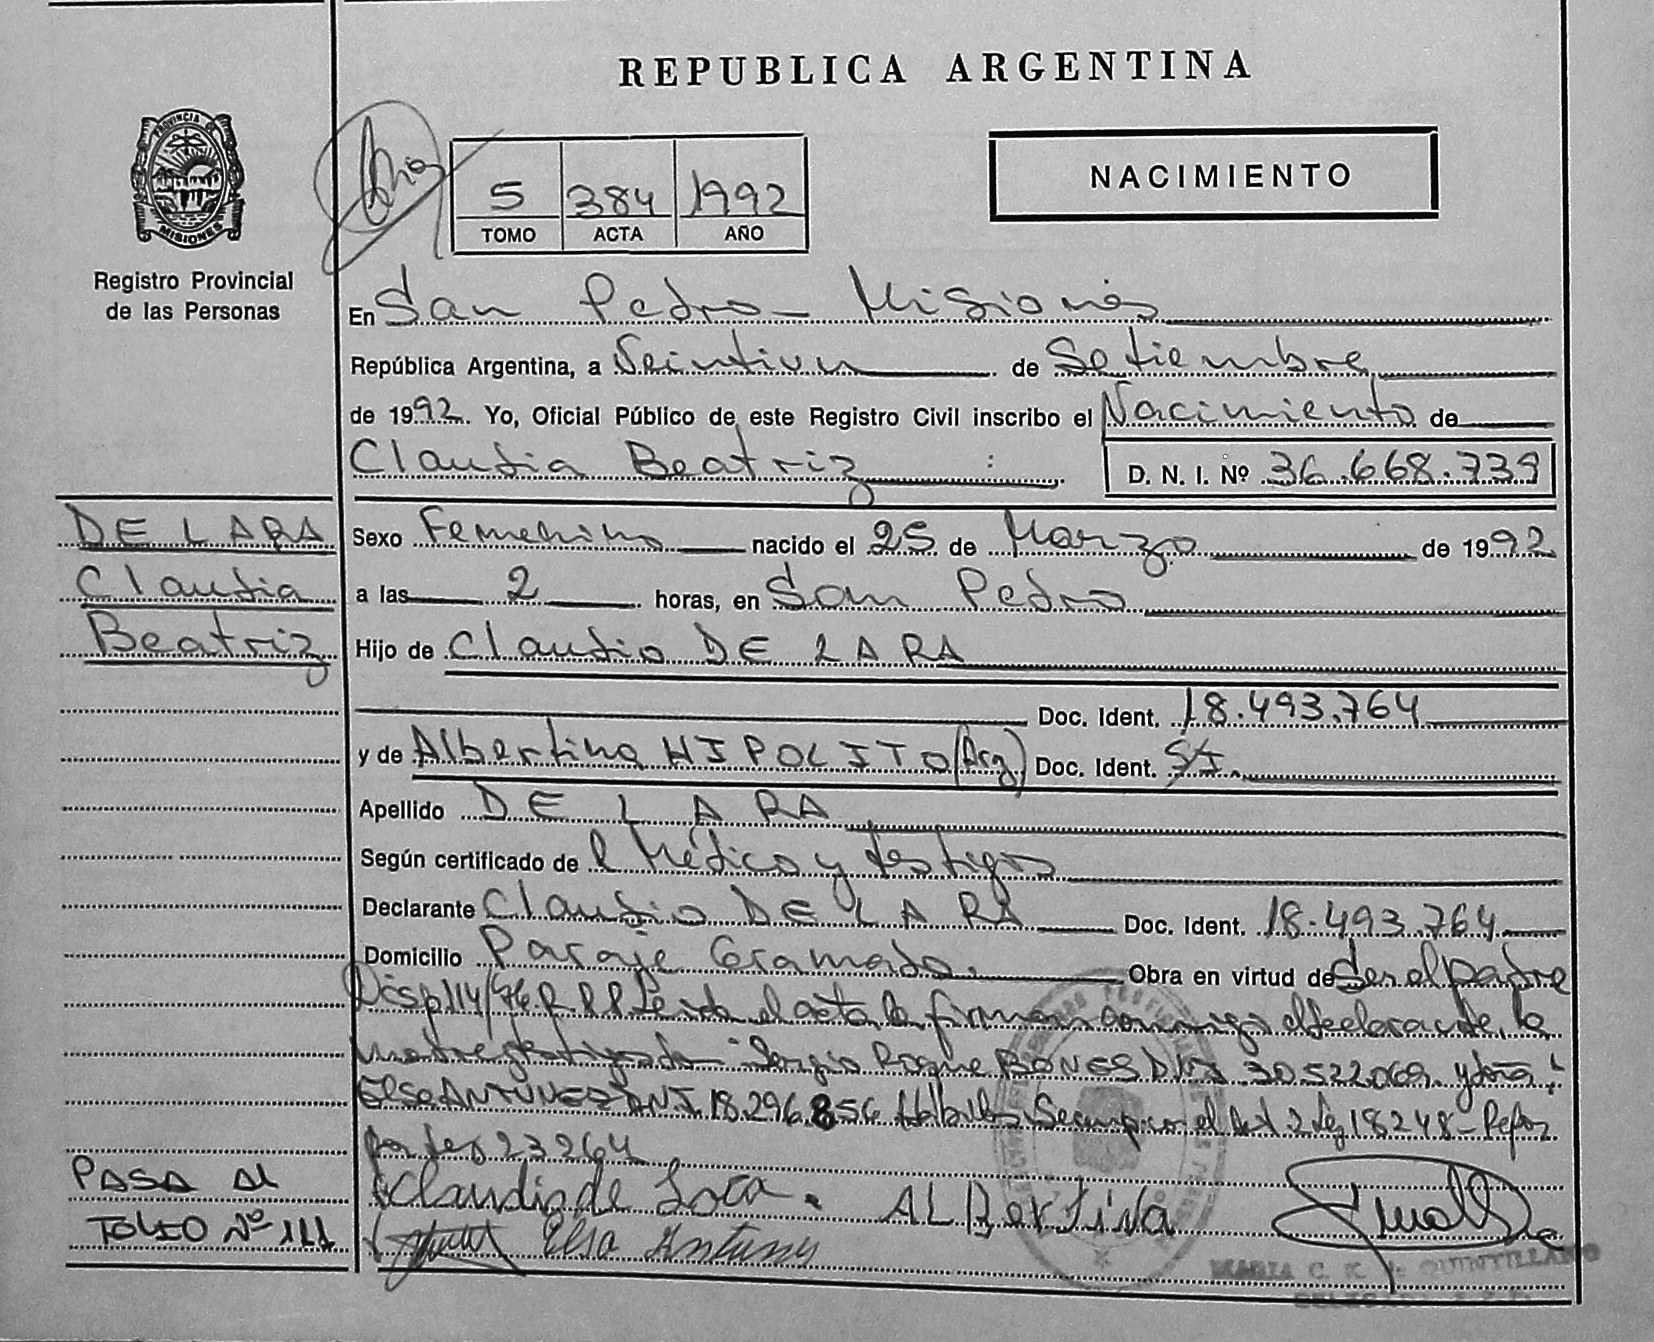 REPUBLICA ARGENTINA
PROVINCIA
MISIONES
Registro Provincial
de las Personas
5 384 1992
TOMO ACTA AÑO
NACIMIENTO
En San Pedro - Misiones
República Argentina, a Veintiun de Setiembre
de 1992. Yo, Oficial Público de este Registro Civil inscribo el Nacimiento de
Claudia Beatriz
D. N. I. Nº 36.668.739
DE LARA
Claudia
Beatriz
Sexo Femenino nacido el 25 de Marzo de 1992
a las 2 horas, en San Pedro
Hijo de Claudio DE LARA
Doc. Ident. 18.493.764
y de Albertina HIPOLITO (Arg) Doc. Ident. S/I.
Apellido DE LARA
Según certificado de l Médico y testigos
Declarante Claudio DE LARA Doc. Ident. 18.493.764
Domicilio Paraje Gramado. Obra en virtud de Ser el padre
Disp 114/76 R P P Leida el acta la firman conmigo el declarante, la
madre testigos Sergio Roque BONES DNI 30.522.069 y doña
Elsa ANTUNEZ DNI 18.296.856 Se el Art 2 Ley 18248 -
23264
PASA AL
FOLIO Nº 111
Claudio de Lara. ALBertina
Elsa Antunes
MARIA C. K. de QUINTILLANO